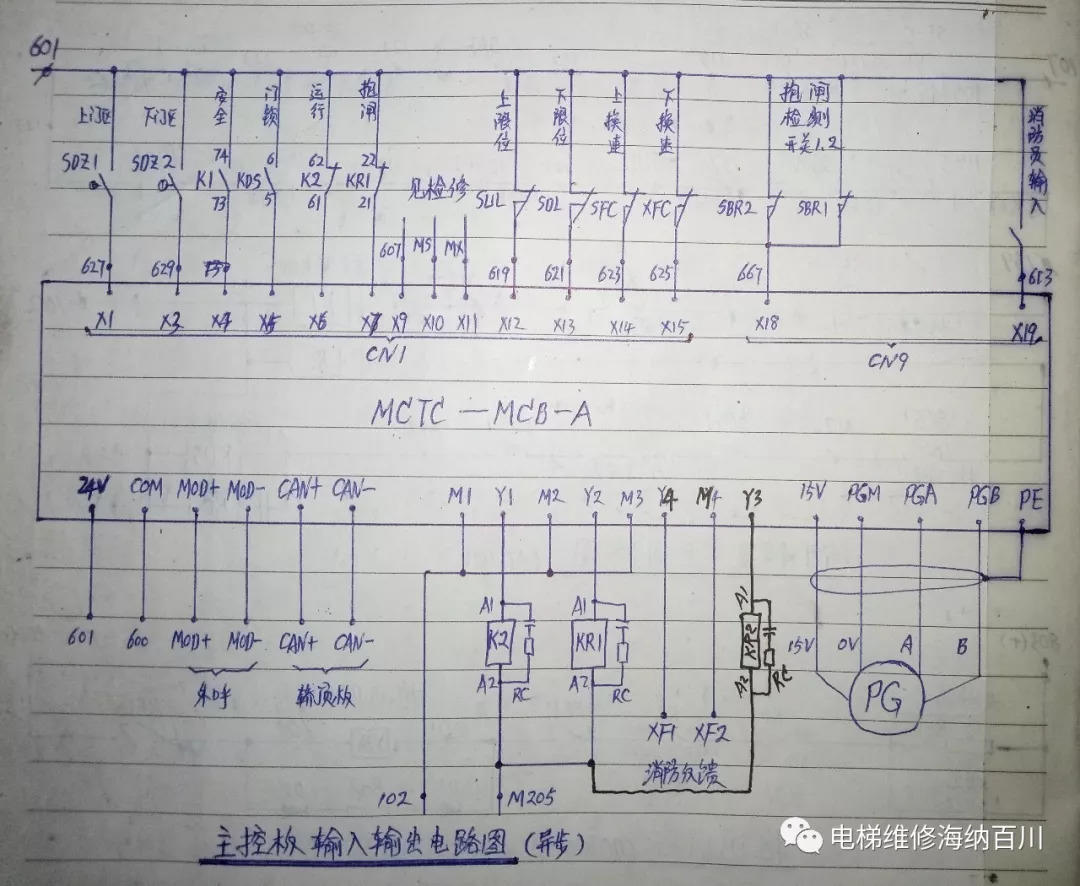 601
上门区 下门区 安全 门锁 运行 抱闸 上限位 下限位 上换速 下换速 抱闸检测开关1.2 消防员输入
SDZ1 SDZ2 74 6 62 22
K1 KDS K2 KR1 见检修 SUL SDL SFC XFC SBR2 SBR1
73 5 61 21
607 MS MX
627 629 619 621 623 625 667 613
X1 X3 X4 X5 X6 X7 X9 X10 X11 X12 X13 X14 X15 X18 X19
CN1 CN9
MCTC-MCB-A
24V COM MOD+ MOD- CAN+ CAN- M1 Y1 M2 Y2 M3 Y4 M4 Y3 15V PGM PGA PGB PE
A1 A1 A1
K2 KR1 KR2
A2 RC A2 RC A2 RC
601 600 MOD+ MOD- CAN+ CAN- 15V 0V A B
外呼 轿顶板 PG
XF1 XF2
消防反馈
102 M205
主控板输入输出电路图(异步)
电梯维修海纳百川